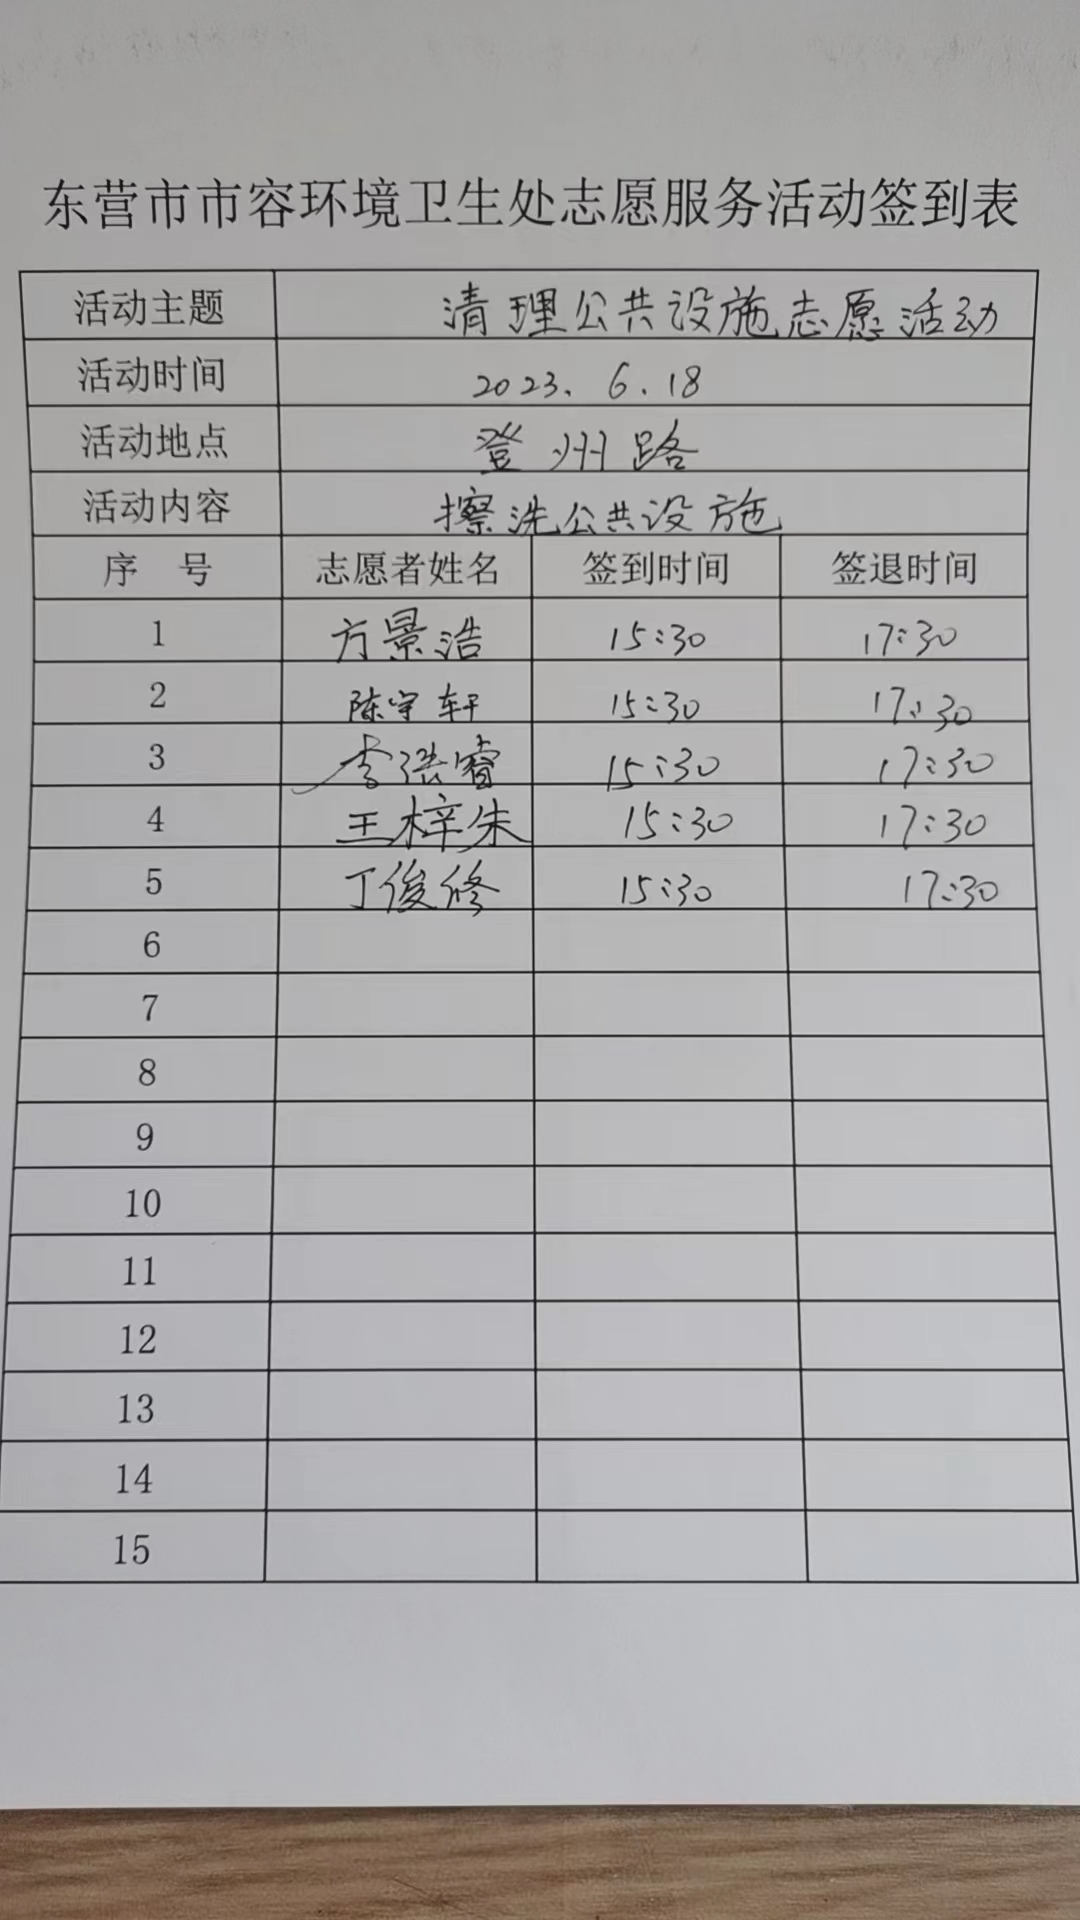 东营市市容环境卫生处志愿服务活动签到表
活动主题 清理公共设施志愿活动
活动时间 2023.6.18
活动地点 登州路
活动内容 擦洗公共设施
序 号 志愿者姓名 签到时间 签退时间
1 方景浩 15:30 17:30
2 陈宇轩 15:30 17:30
3 李浩睿 15:30 17:30
4 王梓朱 15:30 17:30
5 丁俊修 15:30 17:30
6
7
8
9
10
11
12
13
14
15